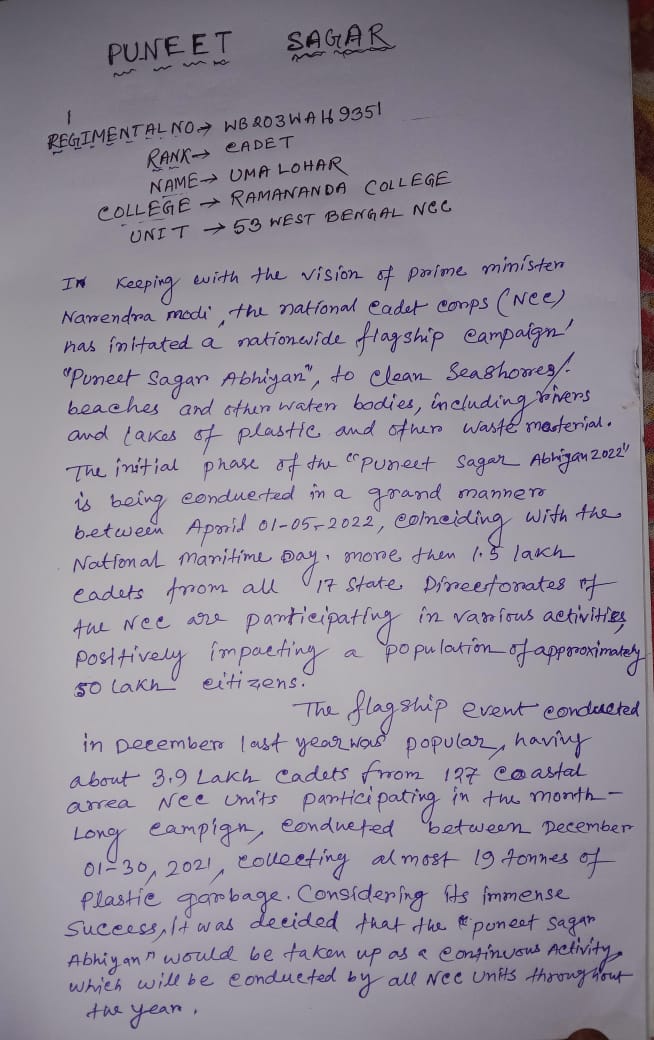 PUNEET SAGAR
REGIMENTAL NO → WB203WAH69351
RANK → CADET
NAME → UMA LOHAR
COLLEGE → RAMANANDA COLLEGE
UNIT → 53 WEST BENGAL NCC
In keeping with the vision of prime minister
Narendra modi, the national cadet corps (NCC)
has initated a nationwide flagship campaign'
"Puneet Sagar Abhiyan", to clean Seashores/.
beaches and other water bodies, including rivers
and lakes of plastic and other waste material.
The initial phase of the "Puneet Sagar Abhiyan 2022"
is being conducted in a grand manner
between April 01-05-2022, coinciding with the
National maritime Day. more then 1.5 lakh
cadets from all 17 State Directorates of
the NCC are participating in various activities,
positively impacting a population of approximately
50 lakh citizens.
The flagship event conducted
in December last year was popular, having
about 3.9 Lakh cadets from 127 coastal
area NCC units participating in the month-
Long campign, conducted between December
01-30, 2021, collecting almost 19 tonnes of
Plastic garbage. Considering its immense
Success, It was decided that the "puneet Sagar
Abhiyan" would be taken up as a continuous Activity,
which will be conducted by all NCC Units throughout
the year.